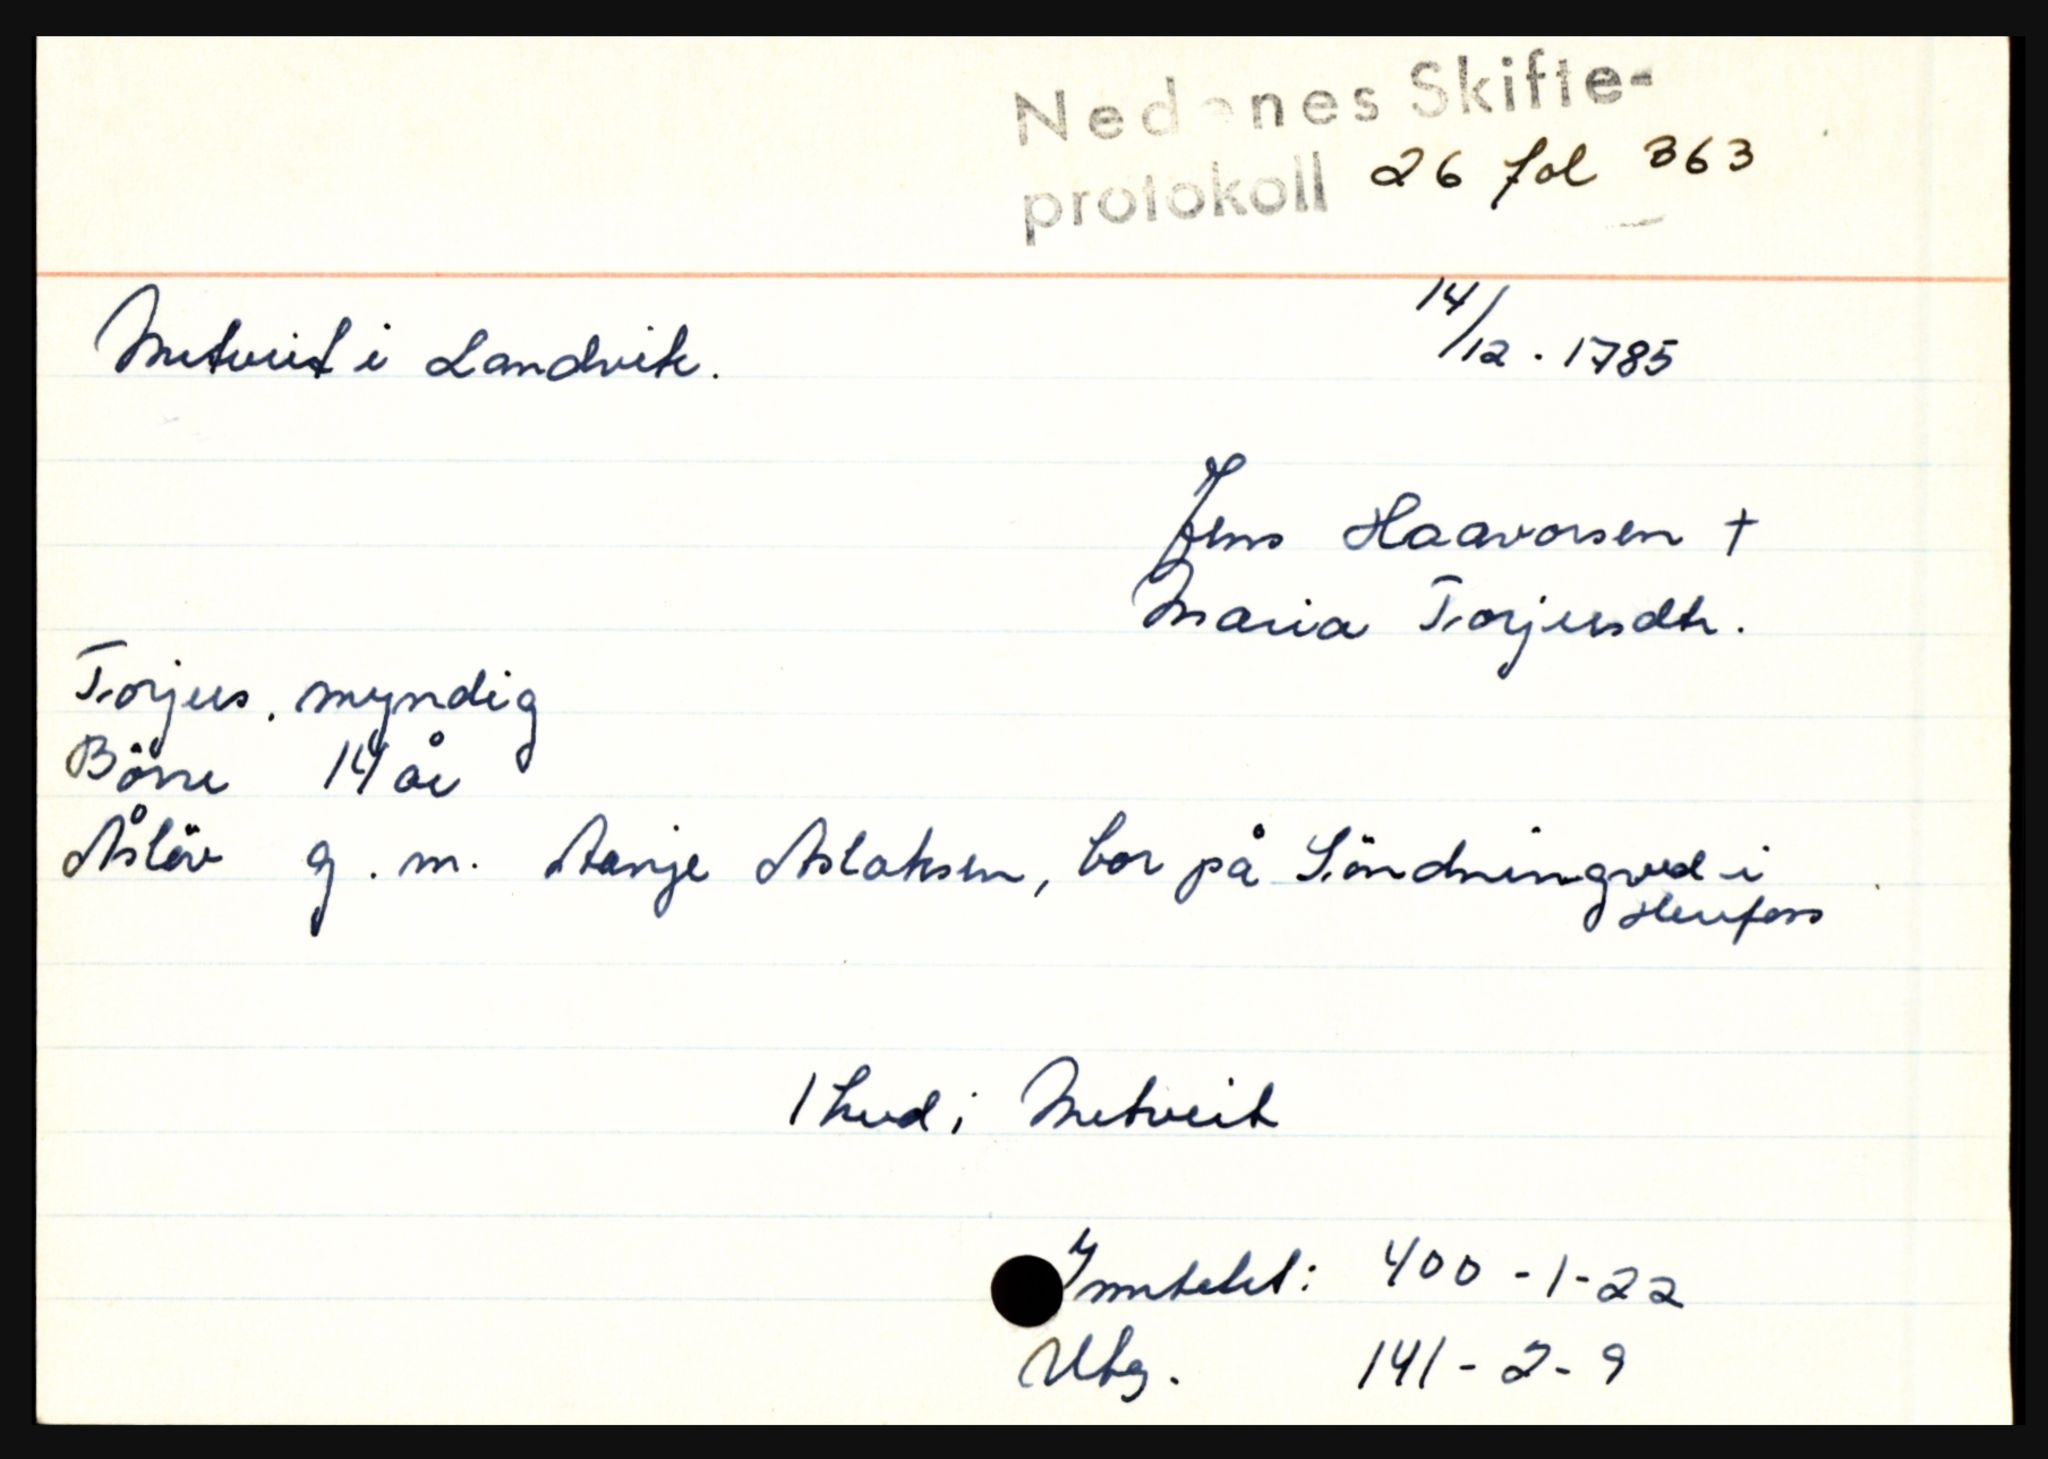 Nedenes Skifte-
protokoll 26 fol 363
Metveit i Landvik.
14/12 . 1785
Jens Haavorsen +
Maria Torjusdtr.
Torjus. myndig
Börre 14 år
Åslöv g. m. Terje Aslaksen, bor på Söndningved i
Herefoss
1 hud i Metveit
Inntekt: 400 - 1 - 22
Utg. 141 - 2 - 9